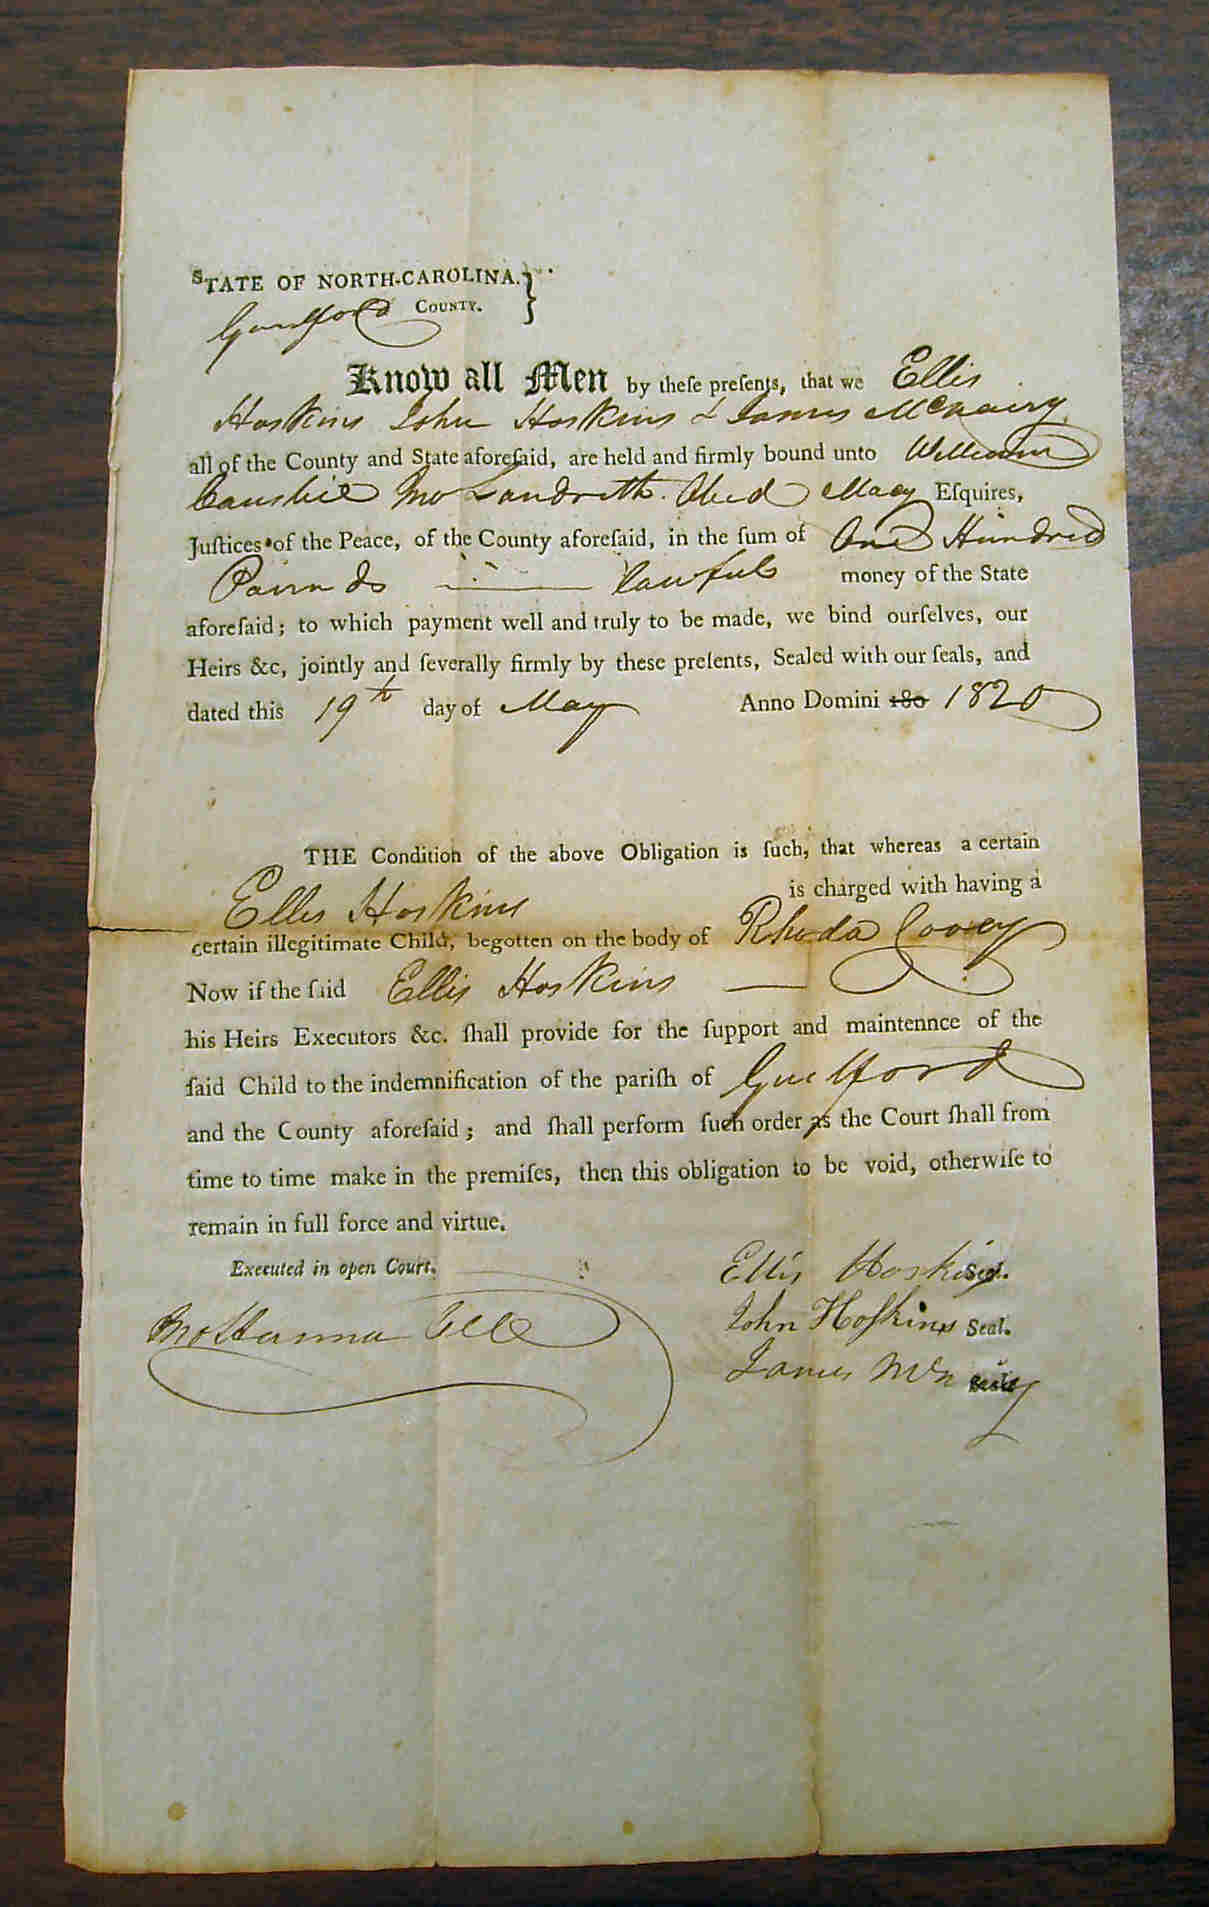 STATE OF NORTH-CAROLINA.}
Guilford COUNTY.
Know all Men by theſe preſents, that we Ellis
Hoskins John Hoskins & James McNairy
all of the County and State aforeſaid, are held and firmly bound unto William
Landreth. Obed Macy Eſquires,
Juſtices of the Peace, of the County aforeſaid, in the ſum of One Hundred
Pounds lawful money of the State
aforeſaid; to which payment well and truly to be made, we bind ourſelves, our
Heirs &c, jointly and ſeverally firmly by these preſents, Sealed with our ſeals, and
dated this 19th day of May Anno Domini 180 1820
THE Condition of the above Obligation is ſuch, that whereas a certain
Ellis Hoskins is charged with having a
certain illegitimate Child, begotten on the body of Rhoda
Now if the ſaid Ellis Hoskins
his Heirs Executors &c. ſhall provide for the ſupport and maintennce of the
ſaid Child to the indemnification of the pariſh of Guilford
and the County aforeſaid; and ſhall perform ſuch order as the Court ſhall from
time to time make in the premiſes, then this obligation to be void, otherwiſe to
remain in full force and virtue.
Executed in open Court.
Ellis Hoskins Seal.
John Hoſkins Seal.
James McNairy Seal